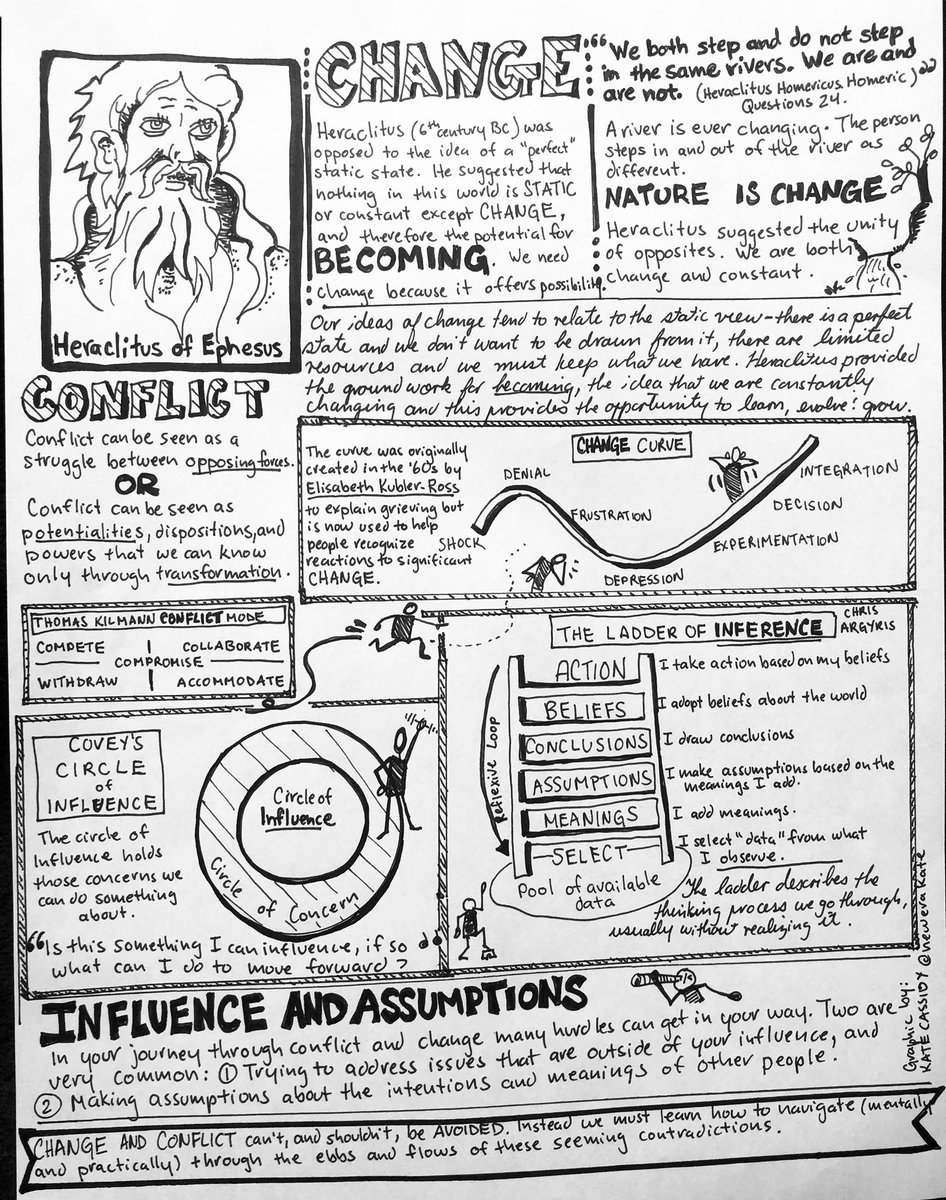 Heraclitus of Ephesus
CHANGE
Heraclitus (6th century BC) was
opposed to the idea of a "perfect"
static state. He suggested that
nothing in this world is STATIC
or constant except CHANGE,
and therefore the potential for
BECOMING. We need
change because it offers possibility.
"We both step and do not step
in the same rivers. We are and
are not. (Heraclitus Homericus, Homeric)"
Questions 24.
A river is ever changing. The person
steps in and out of the river as
different.
NATURE IS CHANGE
Heraclitus suggested the unity
of opposites. We are both
change and constant.
Our ideas of change tend to relate to the static view - there is a perfect
state and we don't want to be drawn from it, there are limited
resources and we must keep what we have. Heraclitus provided
the ground work for becoming, the idea that we are constantly
changing and this provides the opportunity to learn, evolve & grow.
CONFLICT
Conflict can be seen as a
struggle between opposing forces.
OR
Conflict can be seen as
potentialities, dispositions, and
powers that we can know
only through transformation.
The curve was originally
created in the '60s by
Elisabeth Kubler-Ross
to explain grieving but
is now used to help
people recognize
reactions to significant
CHANGE.
CHANGE CURVE
SHOCK
DENIAL
FRUSTRATION
DEPRESSION
EXPERIMENTATION
DECISION
INTEGRATION
THOMAS KILMANN CONFLICT MODE
COMPETE | COLLABORATE
COMPROMISE
WITHDRAW | ACCOMMODATE
COVEY'S
CIRCLE
of
INFLUENCE
The circle of
Influence holds
those concerns we
can do something
about.
Circle of
Influence
Circle of Concern
"Is this something I can influence, if so
what can I do to move forward?"
THE LADDER OF INFERENCE
CHRIS
ARGYRIS
Reflexive Loop
ACTION
I take action based on my beliefs
BELIEFS
I adopt beliefs about the world
CONCLUSIONS
I draw conclusions
ASSUMPTIONS
I make assumptions based on the
meanings I add.
MEANINGS
I add meanings.
SELECT
I select "data" from what
I observe.
Pool of available
data
The ladder describes the
thinking process we go through,
usually without realizing it.
INFLUENCE AND ASSUMPTIONS
In your journey through conflict and change many hurdles can get in your way. Two are
very common: ① Trying to address issues that are outside of your influence, and
② Making assumptions about the intentions and meanings of other people.
Graphic by:
KATE CASSIDY @newevakate
CHANGE AND CONFLICT can't, and shouldn't, be AVOIDED. Instead we must learn how to navigate (mentally
and practically) through the ebbs and flows of these seeming contradictions.